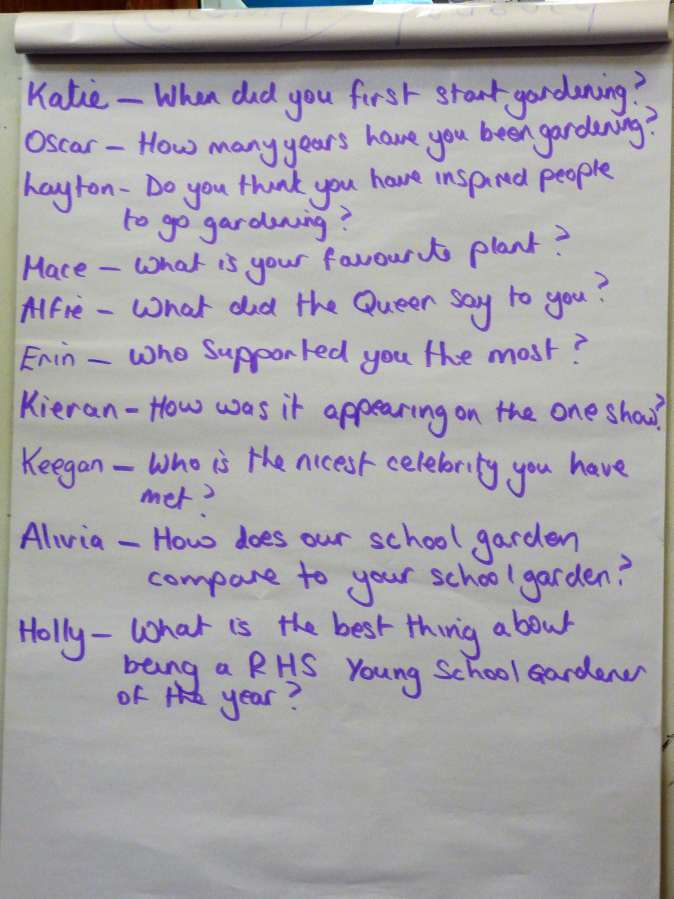 Katie – When did you first start gardening?
Oscar – How many years have you been gardening?
Layton – Do you think you have inspired people
to go gardening?
Mace – What is your favourite plant?
Alfie – What did the Queen say to you?
Erin – Who supported you the most?
Kieran – How was it appearing on the one show?
Keegan – Who is the nicest celebrity you have
met?
Alivia – How does our school garden
compare to your school garden?
Holly – What is the best thing about
being a RHS Young School Gardener
of the year?